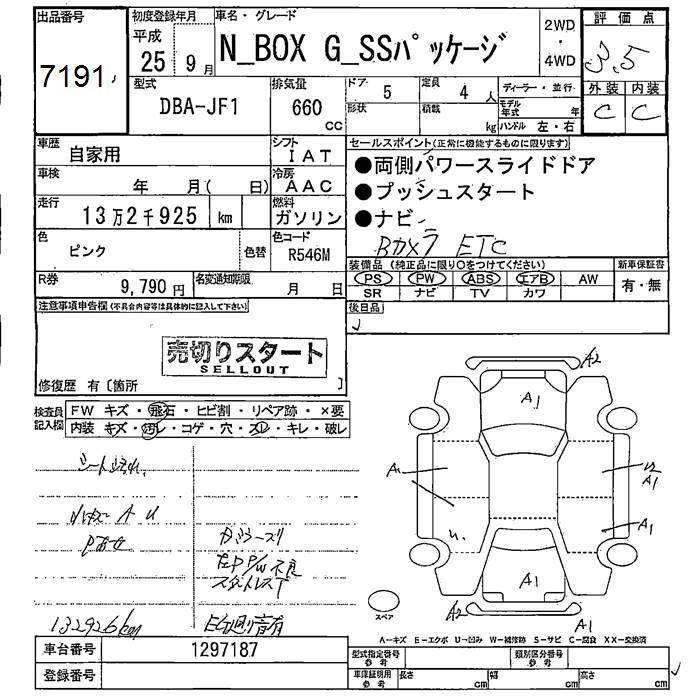 出品番号 初度登録年月 車名・グレード 2WD・4WD 評価点
7191 平成 25年 9月 N_BOX G_SSパッケージ 3.5
型式 DBA-JF1 排気量 660 cc
ドア 5 定員 4人 ディーラー・並行 外装 内装
形状 積載 kg モデル年式 年 ハンドル 左・右 C C
車歴 自家用 シフト IAT
セールスポイント(正常に機能するものに限ります)
●両側パワースライドドア
●プッシュスタート
●ナビ
Bカメラ ETC
車検 年 月( 日) 冷房 AAC
走行 13万2千925 km 燃料 ガソリン
色 ピンク 色替 色コード R546M
R券 9,790円 名変通知期限 月 日
装備品(純正品に限り○をつけてください) 新車保証書
PS PW ABS エアB AW 有・無
SR ナビ TV カワ
後日品
注意事項申告欄(不具合内容等は具体的に記入して下さい)
売切りスタート
SELLOUT
修復歴 有〔箇所 〕
検査員記入欄 FW キズ・飛石・ヒビ割・リペア跡・×要
内装 キズ・汚レ・コゲ・穴・スレ・キレ・破レ
シート汚れ
A U
132926km
A2
A1
A1
A1
A1
A2
A1
スペア
A-キズ E-エクボ U-凹み W-補修跡 S-サビ C-腐食 XX-交換済
車台番号 1297187
登録番号
型式指定番号 参考 類別区分番号 参考
車庫証明用 参考 長さ cm 幅 cm 高さ cm